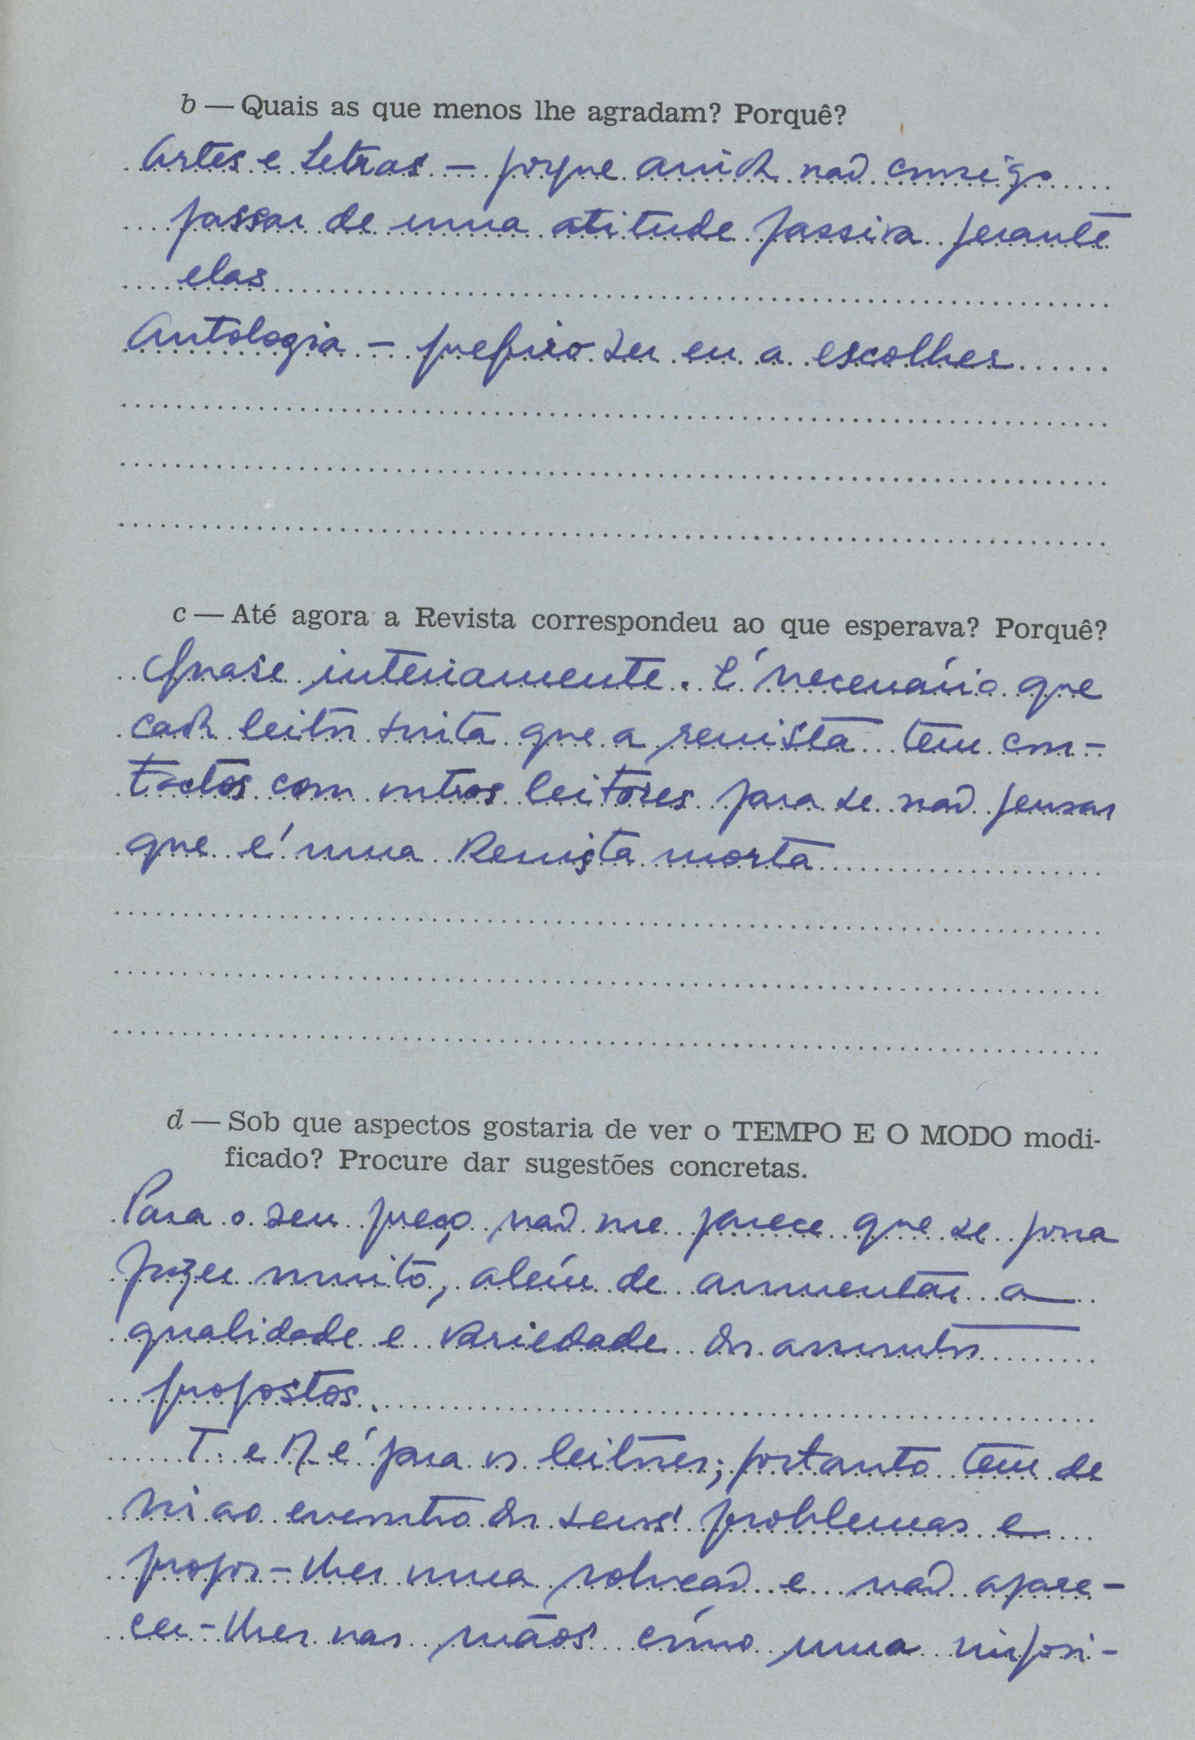 b — Quais as que menos lhe agradam? Porquê?
Artes e Letras — porque ainda não consigo
passar de uma atitude passiva perante
elas
Antologia — prefiro ser eu a escolher
c — Até agora a Revista correspondeu ao que esperava? Porquê?
Quase inteiramente. É necessário que
cada leitor sinta que a revista tem con-
tactos com outros leitores para se não pensar
que é uma Revista morta
d — Sob que aspectos gostaria de ver o TEMPO E O MODO modi-
ficado? Procure dar sugestões concretas.
Para o seu preço não me parece que se possa
fazer muito, além de aumentar a
qualidade e variedade dos assuntos
propostos.
T. e M. é para os leitores; portanto tem de
vir ao encontro dos seus problemas e
propor-lhes uma solução e não apare-
cer-lhes nas mãos como uma imposi-